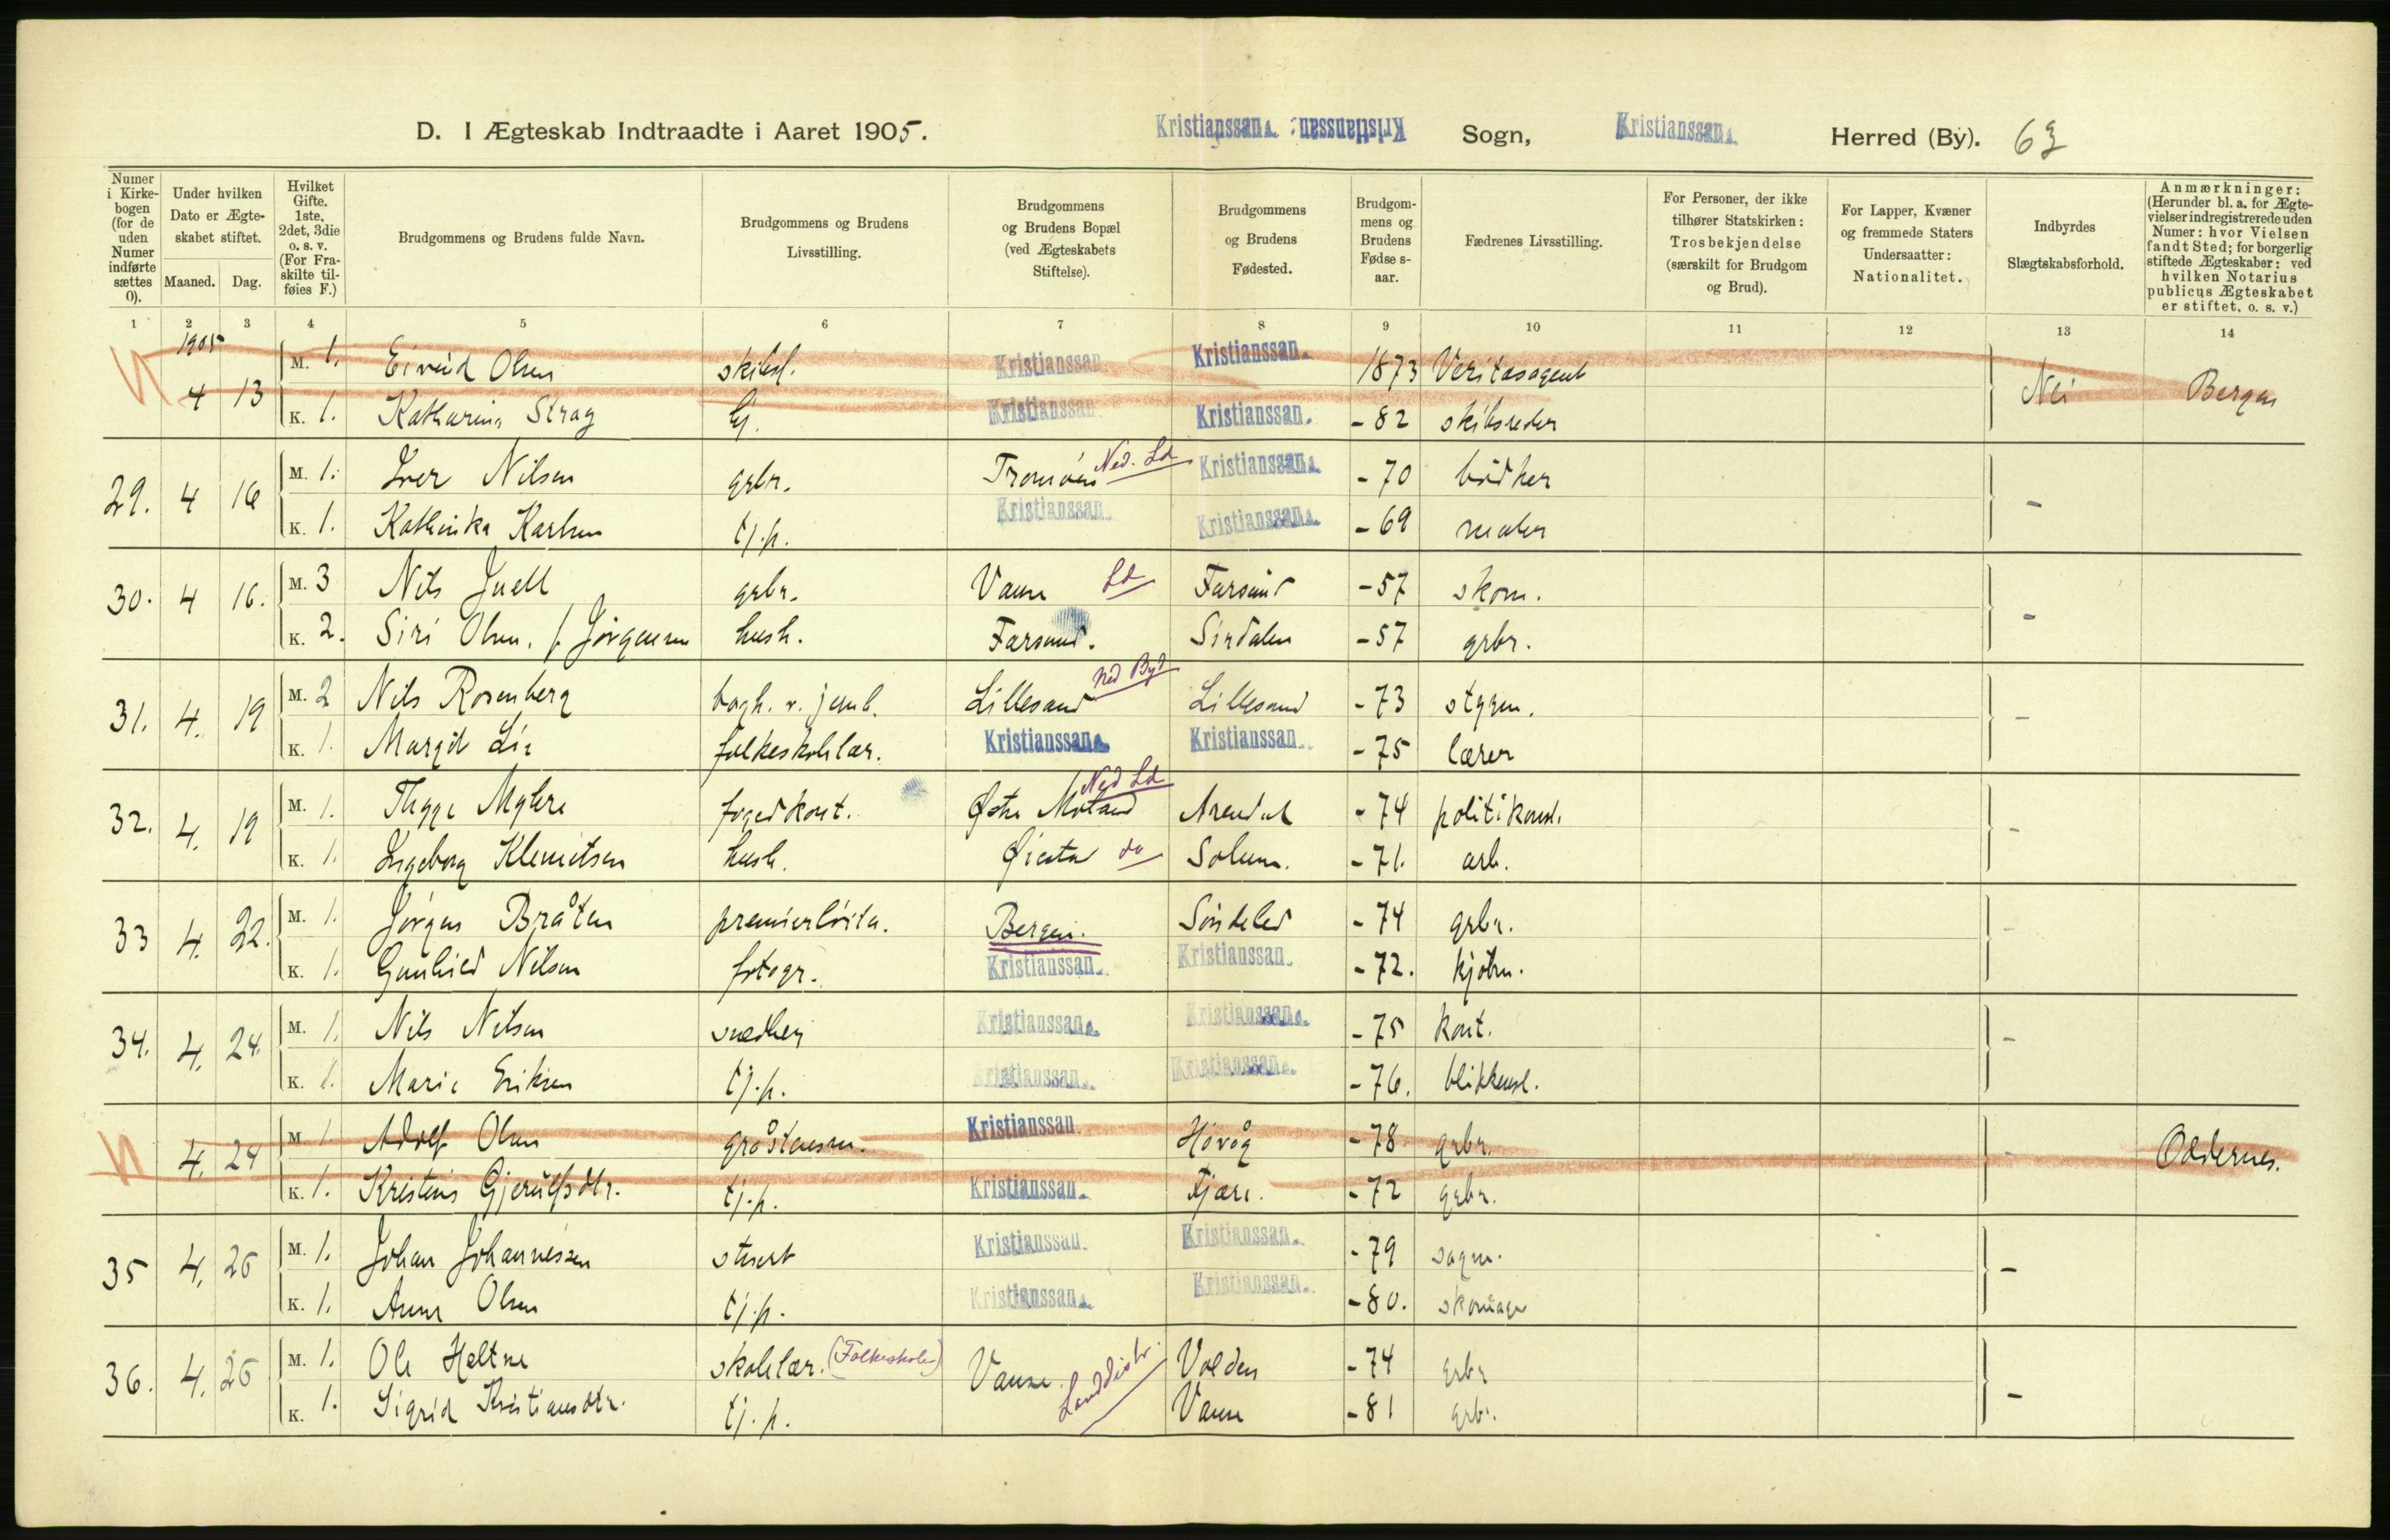 D. I Ægteskab Indtraadte i Aaret 1905. Kristianssan Kristianssan Sogn, Kristianssan Herred (By). 63
Numer i Kirkebogen (for de uden Numer indførte sættes 0).
Under hvilken Dato er Ægteskabet stiftet.
Maaned. Dag.
Hvilket Gifte. 1ste, 2det, 3die o. s. v. (For Fraskilte tilføies F.)
Brudgommens og Brudens fulde Navn.
Brudgommens og Brudens Livsstilling.
Brudgommens og Brudens Bopæl (ved Ægteskabets Stiftelse).
Brudgommens og Brudens Fødested.
Brudgommens og Brudens Fødse s-aar.
Fædrenes Livsstilling.
For Personer, der ikke tilhører Statskirken: Trosbekjendelse (særskilt for Brudgom og Brud).
For Lapper, Kvæner og fremmede Staters Undersaatter: Nationalitet.
Indbyrdes Slægtskabsforhold.
Anmærkninger: (Herunder bl. a. for Ægtevielser indregistrerede uden Numer: hvor Vielsen fandt Sted; for borgerlig stiftede Ægteskaber: ved hvilken Notarius publicus Ægteskabet er stiftet, o. s. v.)
1 2 3 4 5 6 7 8 9 10 11 12 13 14
1905
M. 1. Eivind Olsen skibsf. Kristianssan Kristianssan. 1873 Veritasagent
4 13 Nei Bergen
K. 1. Katharina Strag Kristianssan Kristianssan. - 82 skibsreder
Ned. Ld
M. 1. Iver Nilsen grbr. Tromøen Kristianssan - 70 bødker
29. 4 16 -
K. 1. Kathinka Karlsen tj.p. Kristianssan Kristianssan - 69 maler
M. 3 Nils Juell grbr. Vanse Ld Farsund - 57 skom.
30. 4 16. -
K. 2. Siri Olsen, f. Jørgensen hush. Farsund. Sirdalen - 57 grbr.
Ned Byd
M. 2 Nils Rosenberg bogh. v. jernb. Lillesand Lillesand - 73 styrm.
31. 4. 19 -
K. 1. Margit Lie folkeskolelær. Kristianssan Kristianssan. - 75 lærer
Ned Ld
M. 1. Thygge Myhre fogedkont. Østre Moland Arendal - 74 politikonst.
32. 4. 19 -
K. 1. Ingeborg Klemetsen hush. Øiestad do Solum. - 71. arb.
M. 1. Jørgen Bråten premierløitn. Bergen. Søndeled - 74 grbr.
33 4. 22. -
K. 1. Gunhild Nilsen fotogr. Kristianssan. Kristianssan. - 72. kjøbm.
M. 1. Nils Nilsen snedker Kristianssan Kristianssan - 75 kont.
34. 4. 24. -
K. 1. Marie Eriksen tj.p. Kristianssan. Kristianssan. - 76. blikkensl.
M. 1 Adolf Olsen gråstensm. Kristianssan Høvåg - 78 grbr.
4. 24 - Oddernes.
K. 1. Kristine Gjerulfsdtr. tj.p. Kristianssan. Fjære. - 72 grbr.
M. 1. Johan Johannessen stuert Kristianssan Kristianssan. - 79 sagm.
35 4. 26 -
K. 1. Anna Olsen tj.p. Kristianssan Kristianssan. - 80. skomager
M. 1. Ole Heltne skolelær. (Folkeskole) Vanse. Landdistr. Volden - 74 grbr
36. 4. 26 -
K. 1. Sigrid Kristiansdtr. tj.p. Vanse - 81 grbr.